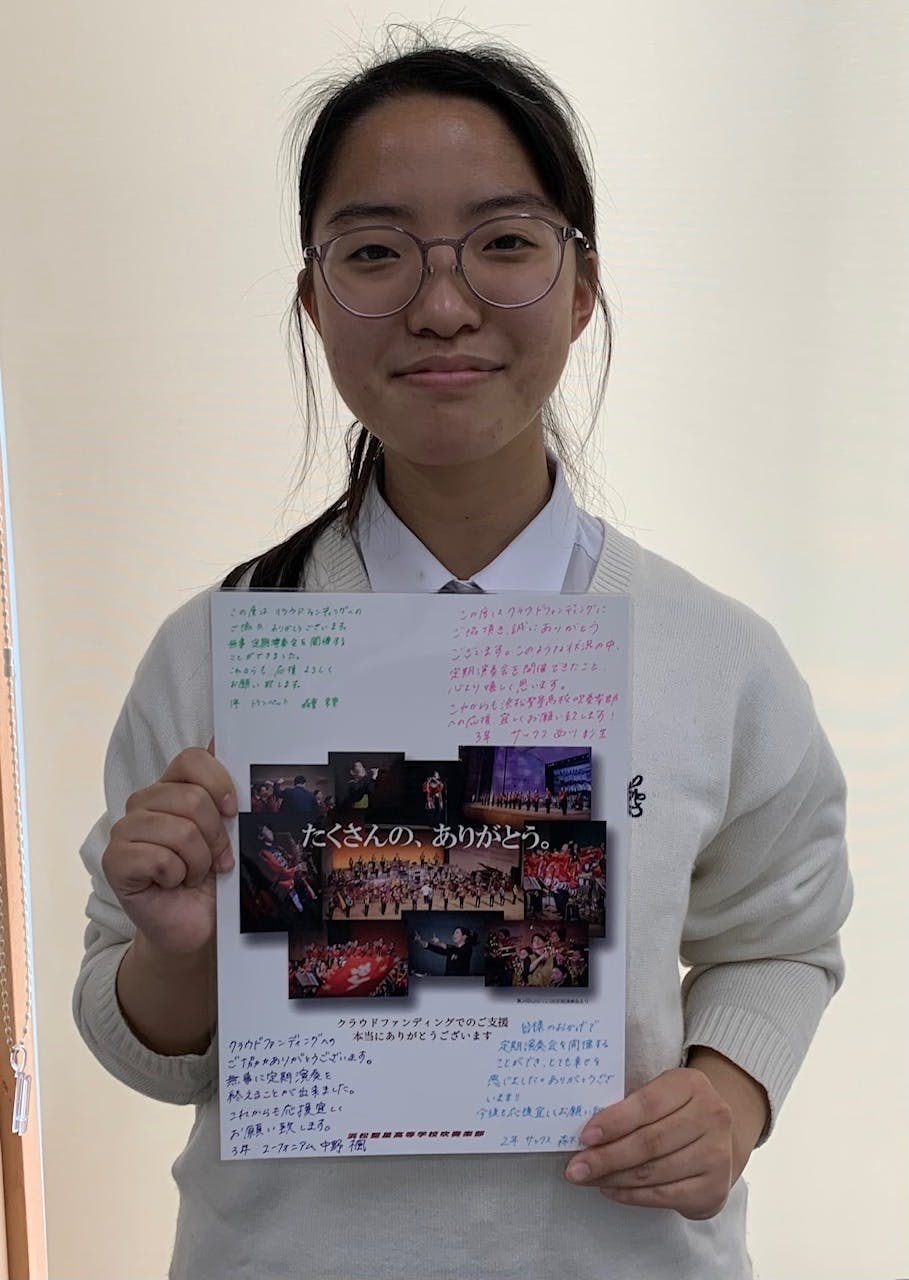 この度は クラウドファンディングへの
ご協力 ありがとうございます。
無事 定期演奏会を開催する
ことができました。
これからも 応援 よろしく
お願い致します。
トランペット
この度はクラウドファンディングに
ご協力頂き、誠にありがとう
ございます。このような状況の中、
定期演奏会を開催できたこと、
心より嬉しく思います。
これからも浜松聖星高校吹奏楽部
への応援、宜しくお願い致します!
3年 サックス 西川
たくさんの、ありがとう。
クラウドファンディングでのご支援
本当にありがとうございます
クラウドファンディングへの
ご協力ありがとうございます。
無事に定期演奏を
終えることが出来ました。
これからも応援宜しく
お願い致します。
3年 ユーフォニアム 中野 楓
皆様のおかげで
定期演奏会を開催する
ことができ、とても幸せを
感じました。ありがとうござ
います!!
今後も応援宜しくお願い
2年 サックス
浜松聖星高等学校吹奏楽部